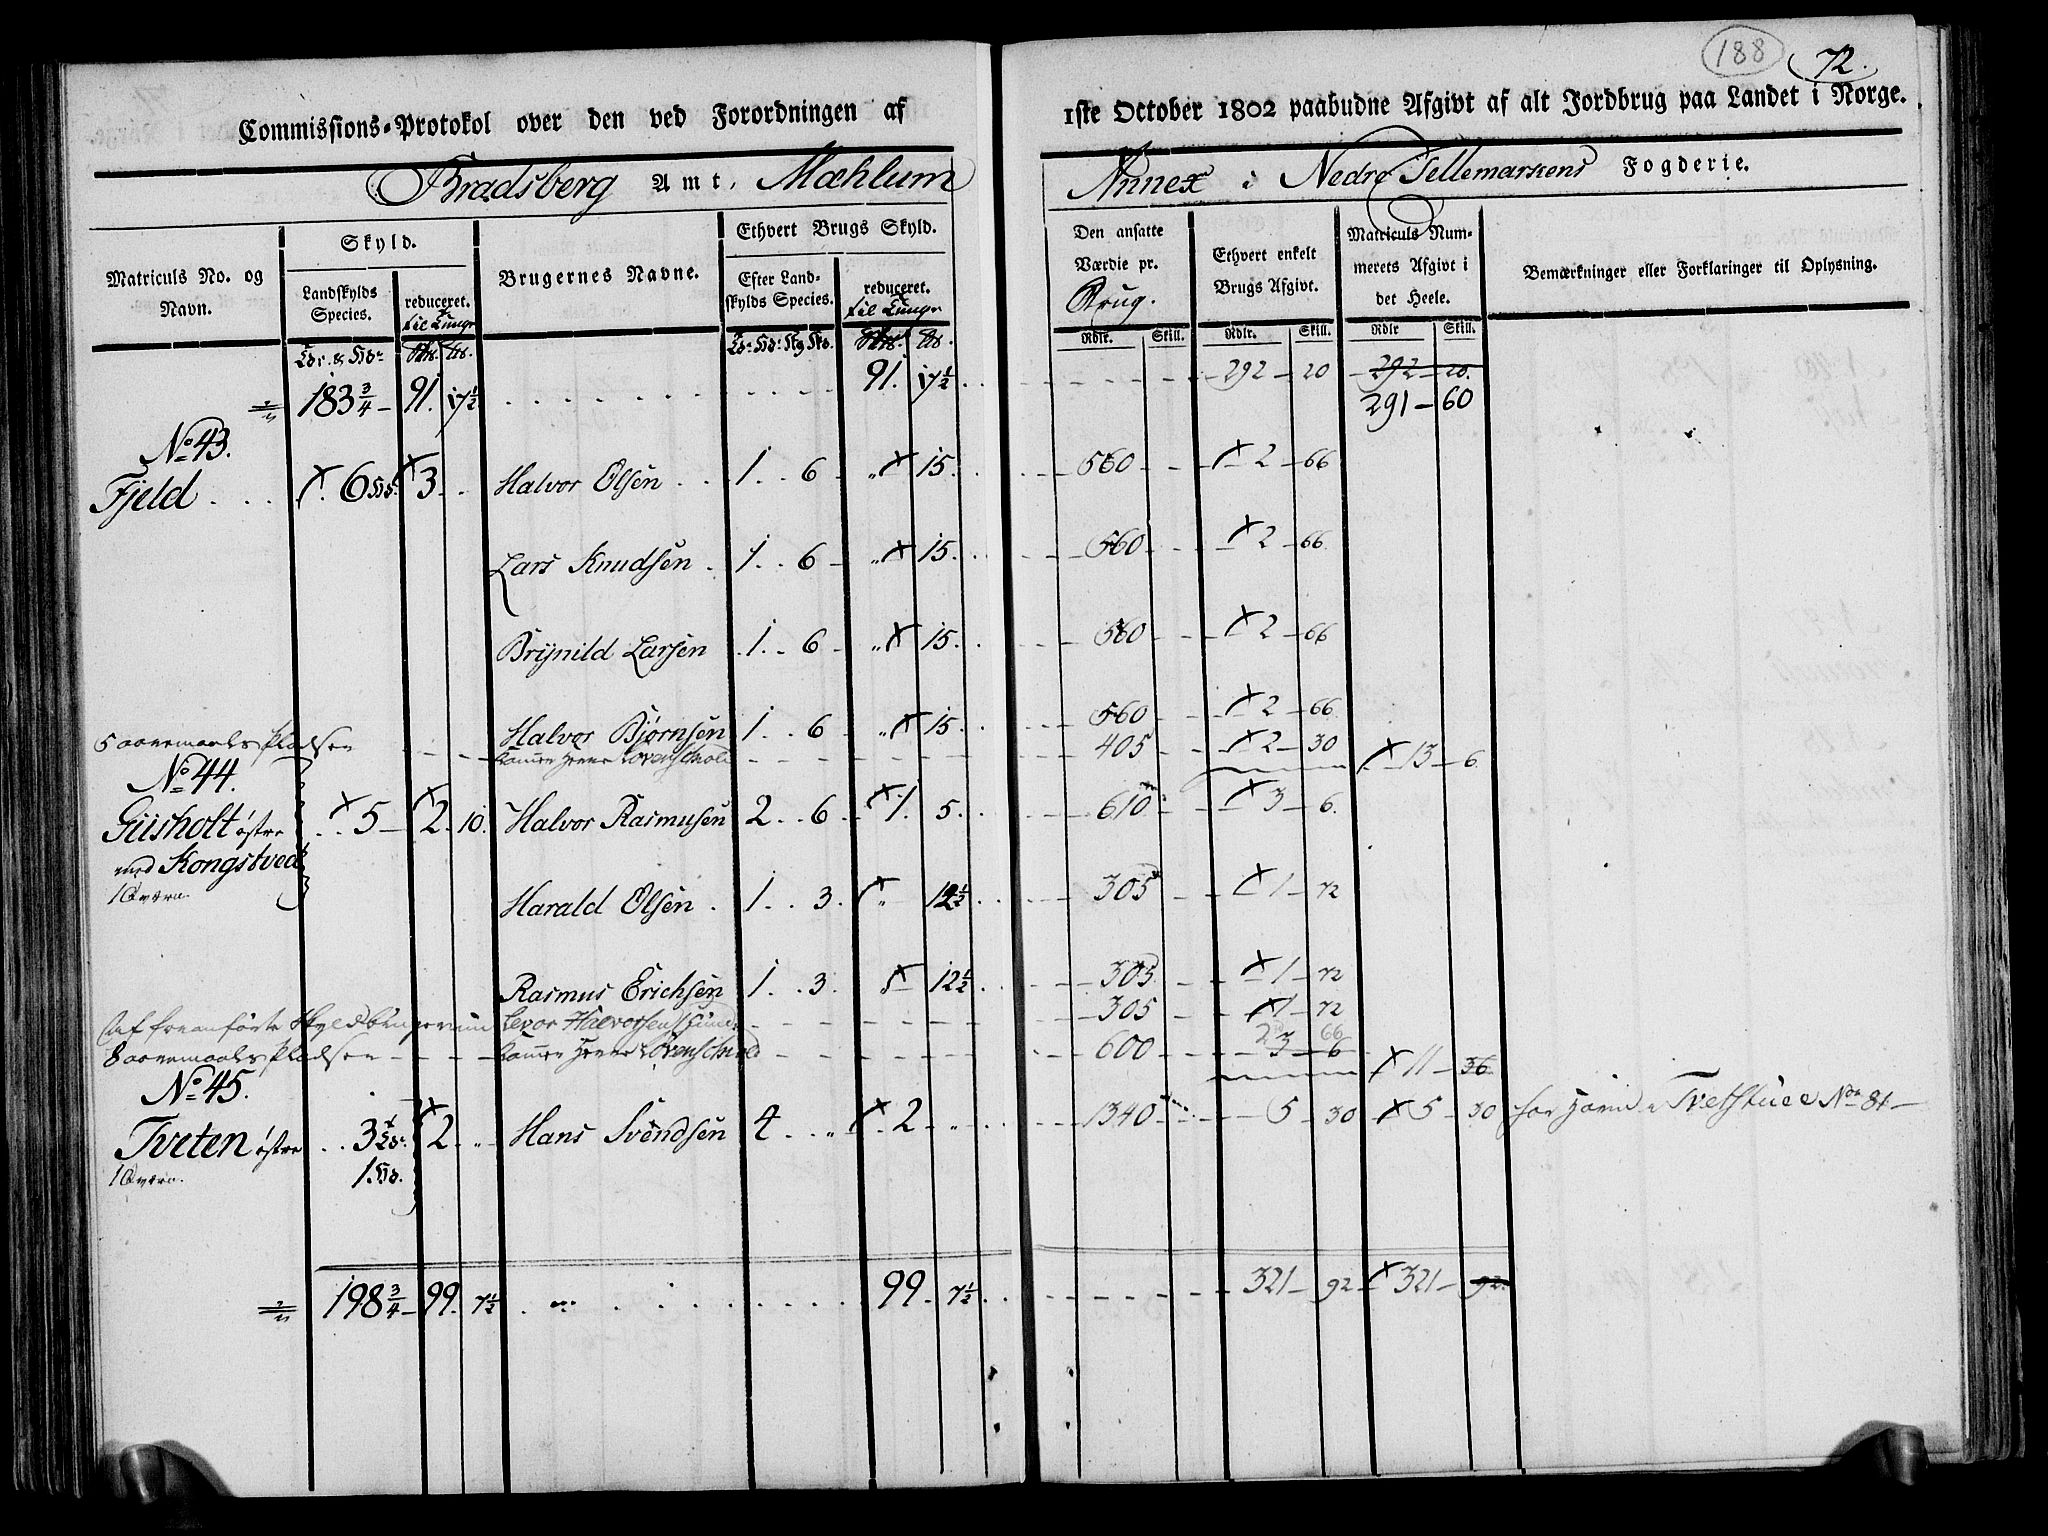 188 72.
Commissions-Protokol over den ved Forordningen af 1ste October 1802 paabudne Afgivt af alt Jordbrug paa Landet i Norge.
Bradsberg Amt, Mæhlum Annex i Nedre Tellemarkens Fogderie.
Matriculs No. og Navn.
Skyld.
Landskylds Species.
reduceret.
til Tunge
Brugernes Navne.
Ethvert Brugs Skyld.
Efter Landskylds Species.
reduceret.
til Tunge
Den ansatte Værdie pr. Brug.
Ethvert enkelt Brugs Afgivt.
Matriculs Nummerets Afgivt i det Heele.
Bemærkninger eller Forklaringer til Oplysning.
Rdlr. Skill. Rdlr. Skill. Rdlr Skill.
183 3/4 91. 17 1/2 91. 17 1/2 292 20 292 20.
291 60
No 43.
Fjeld 6 3 Halvor Olsen 1 6 15. 560 2 66
Lars Knudsen 1 6 15. 560 2 66
Brynild Larsen 1 6 15. 560 2 66
Halvor Bjørnsen 1 6 15. 560 2 66
5 Pladser 405 2 30 13 6
No 44.
Giisholt østre 5 2 10. Halvor Rasmusen 2 6 1 5. 610 3 6.
med Kongstved
1 Qværn.
Harald Olsen 1 3. 12 1/2 305 1 72
Rasmus Erichsen 1 3. 12 1/2 305 1 72
Levor Halvorsen 305 1 72
2 66
8 Pladser 600 3 6 11 36
No 45.
Tveten østre 3 2 Hans Svendsen 4 2 1340 5 30 5 30 No 81
1 Qværn. 1
198 3/4 99. 7 1/2 99 7 1/2 321 92 321 92.